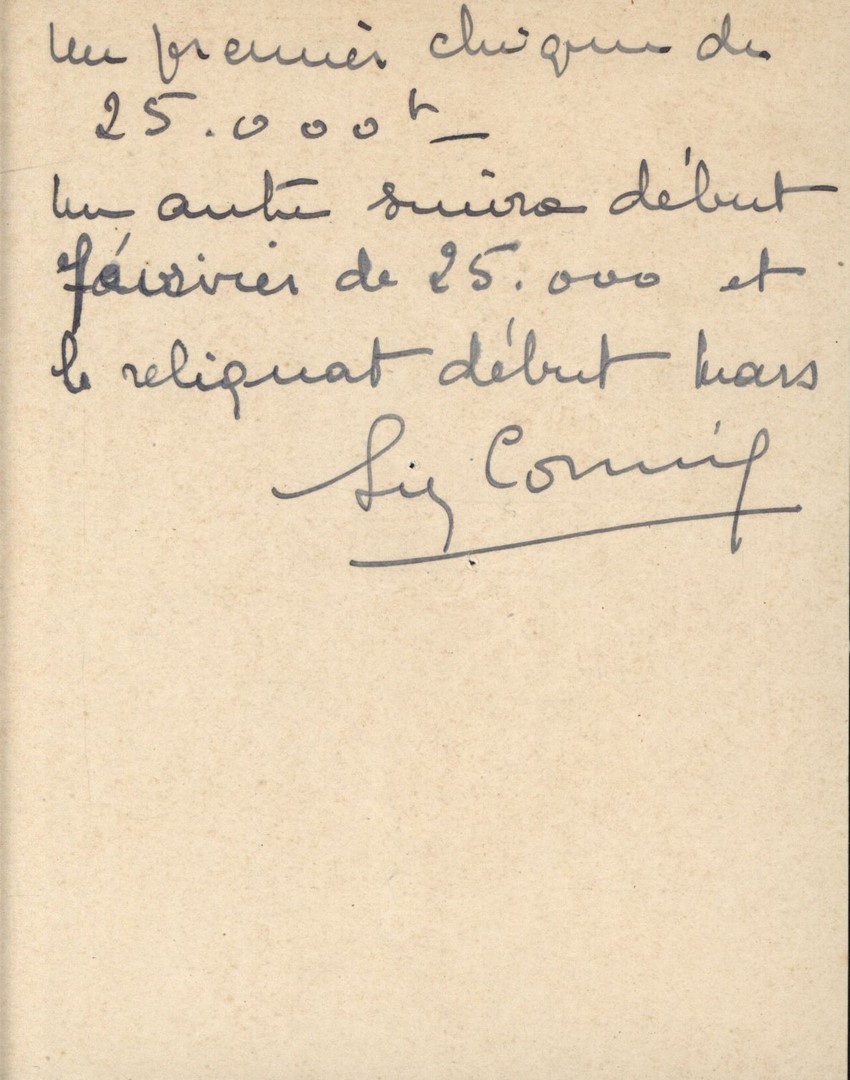 Un premier chèque de
25.000 f
Un autre suivra début
Février de 25.000 et
le reliquat début Mars